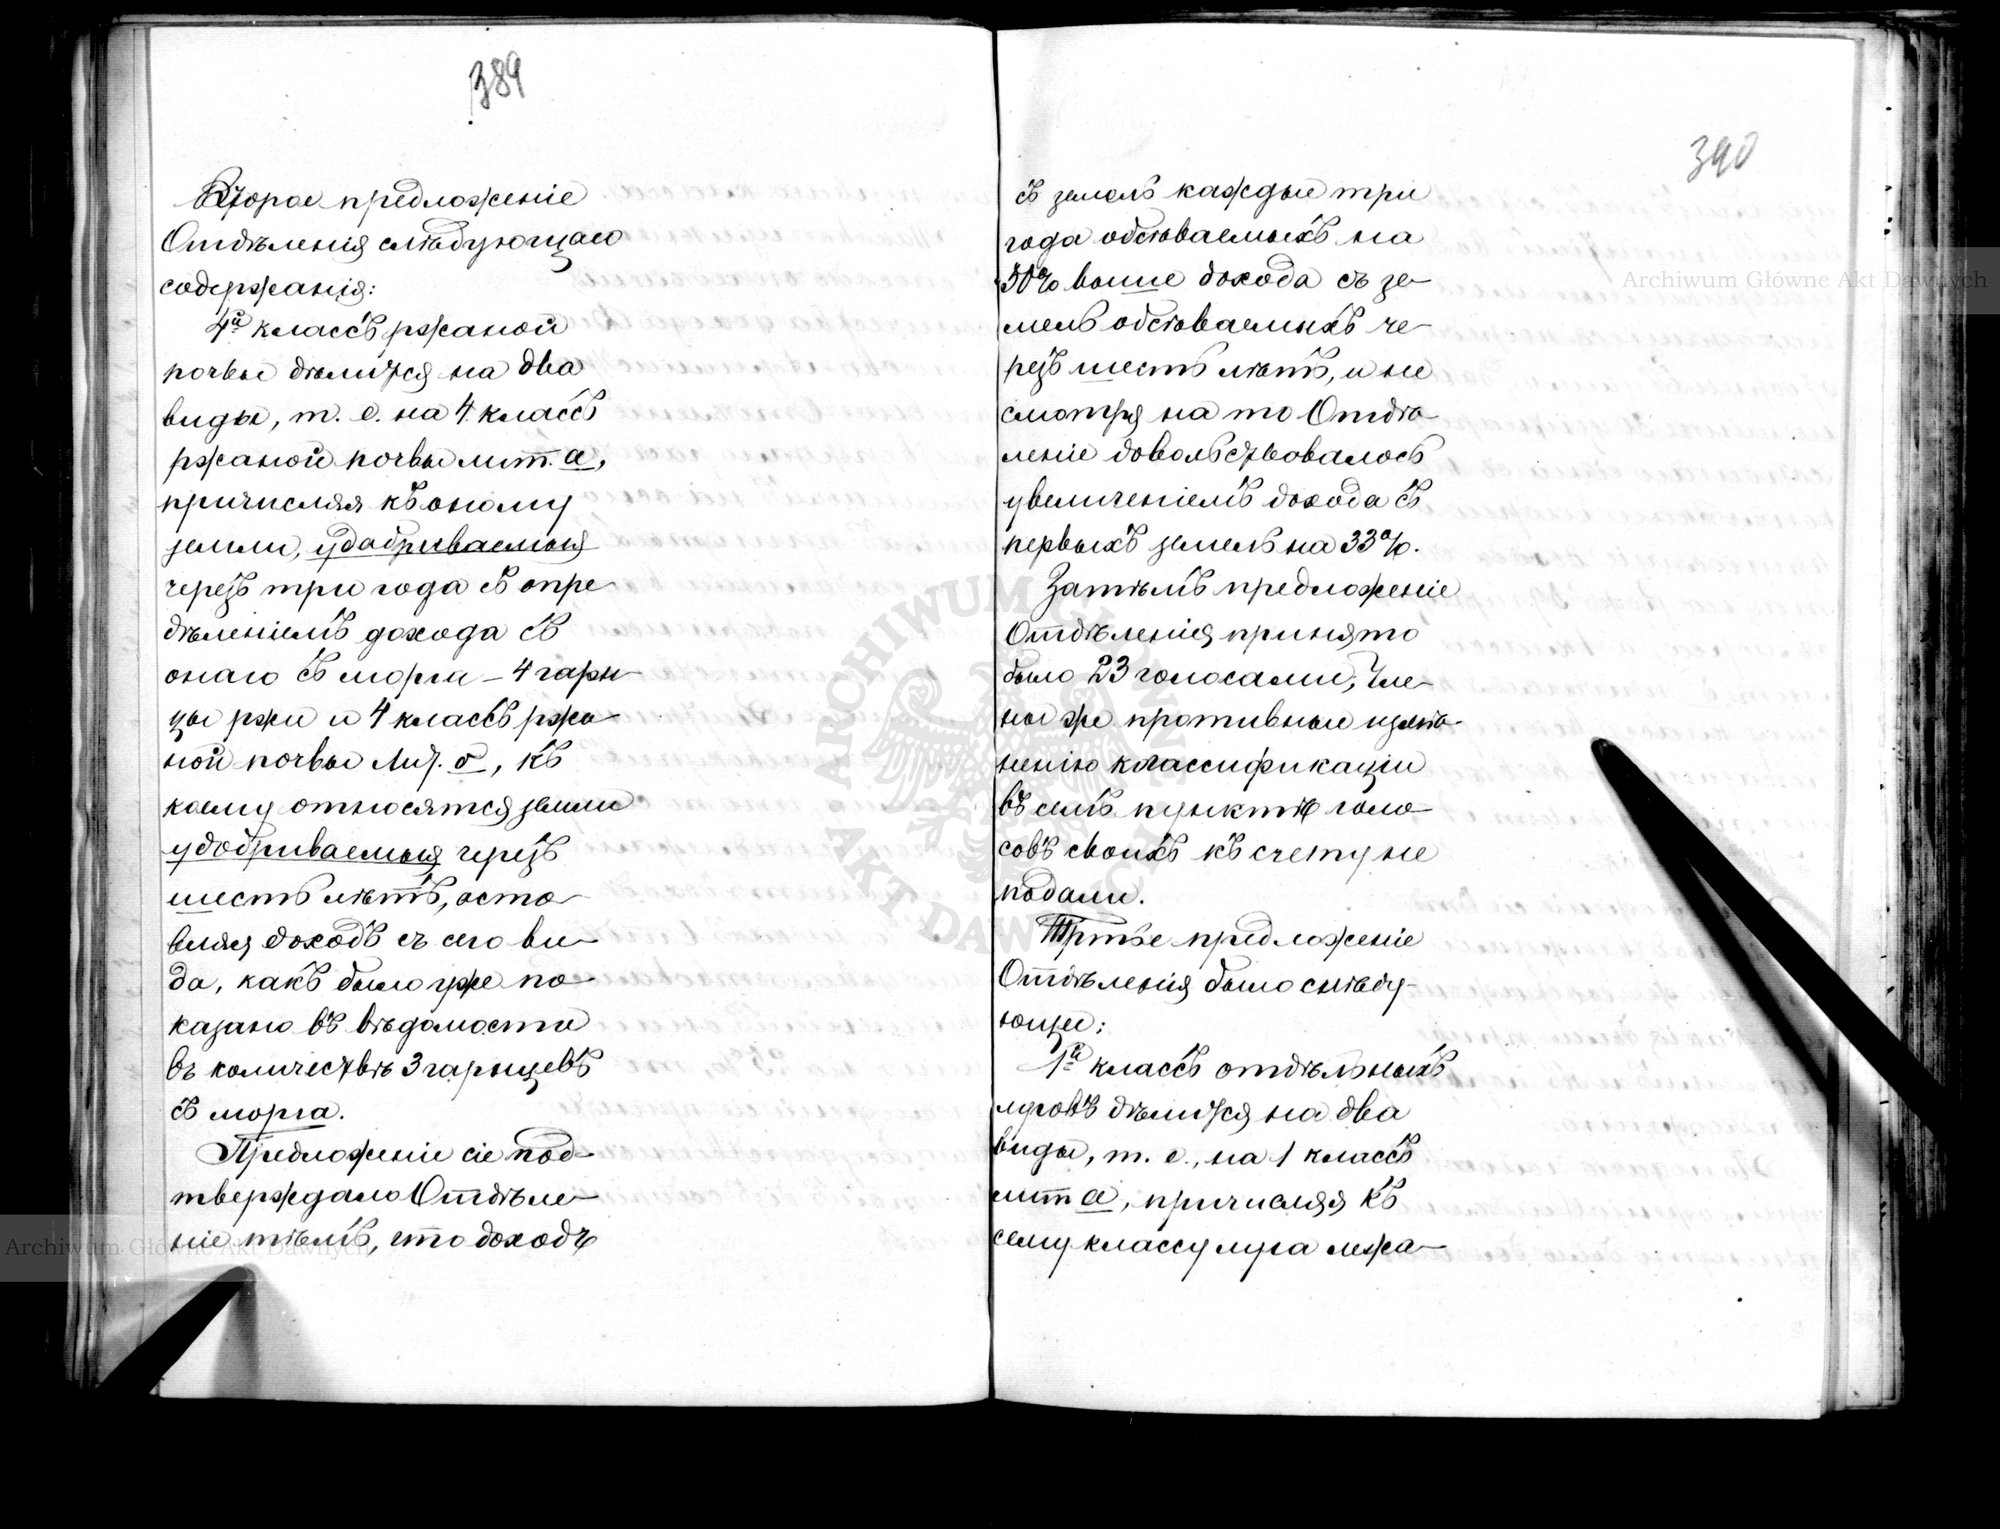 389
Второе предложеніе
Отдѣленія слѣдующаго
содержанія:
4й классъ ржаной
почвы дѣлится на два
виды, т. е. на 4 классъ
ржаной почвы лит. а,
причисляя къ оному
земли, удабриваемыя
черезъ три года съ опре-
дѣленіемъ дохода съ
онаго съ морга – 4 гарн-
цы ржи и 4 классъ ржа-
ной почвы Лит. б, къ
коему относятся земли
удобриваемыя черезъ
шесть лѣтъ, оста-
вляя доходъ съ сего ви-
да, какъ было уже по-
казано въ вѣдомости
въ количествѣ 3 гарнцевъ
съ морга.
Предложеніе сіе под-
тверждало Отдѣле-
ніе тѣмъ, что доходъ
390
съ земель каждые три
года обсѣваемыхъ на
50% выше дохода съ зе-
мель обсѣваемыхъ че-
резъ шесть лѣтъ, и не
смотря на то Отдѣ-
леніе довольствовалось
увеличеніемъ дохода съ
первыхъ земель на 33%.
Затѣмъ предложеніе
Отдѣленія принято
было 23 голосами; Чле-
ны же противные измѣ-
ненію классификаціи
въ семъ пунктѣ голо-
совъ своихъ къ счету не
подали.
Третье предложеніе
Отдѣленія было слѣду-
ющее:
1й классъ отдѣльныхъ
луговъ дѣлится на два
виды, т. е., на 1 классъ
лит а, причисляя къ
сему классу луга лежа-
ARCHIWUM GŁÓWNE AKT DAWNYCH
Archiwum Główne Akt Dawnych
Archiwum Główne Akt Dawnych